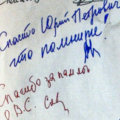 Спасибо Юрий Петрович
что помните!
Спасибо за память
о В.С.